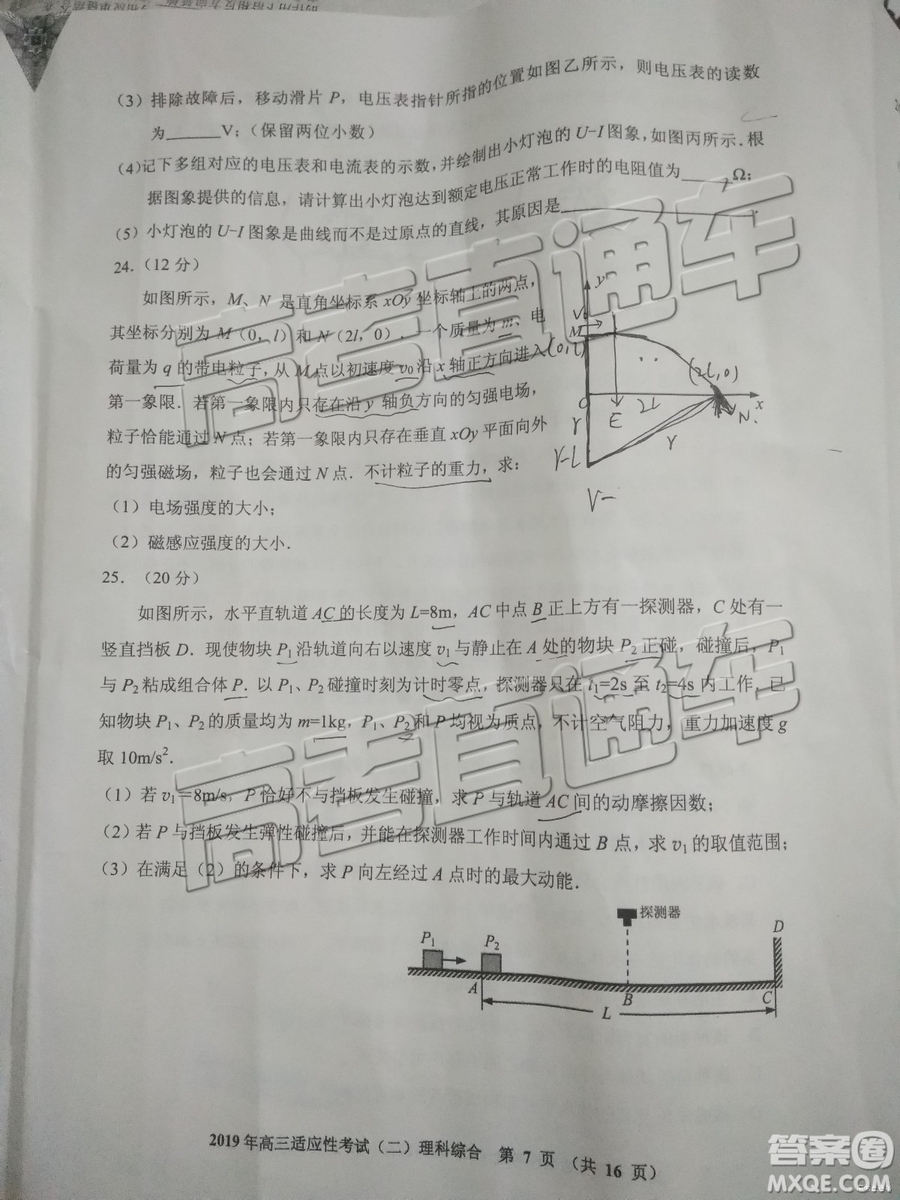 （3）排除故障后，移动滑片 P，电压表指针所指的位置如图乙所示，则电压表的读数
为______V；（保留两位小数）
（4）记下多组对应的电压表和电流表的示数，并绘制出小灯泡的 U-I 图象，如图丙所示．根
据图象提供的信息，请计算出小灯泡达到额定电压正常工作时的电阻值为______Ω；
（5）小灯泡的 U-I 图象是曲线而不是过原点的直线，其原因是______
24．（12 分）
如图所示，M、N 是直角坐标系 xOy 坐标轴上的两点，
其坐标分别为 M（0，l）和 N（2l，0）．一个质量为 m、电
荷量为 q 的带电粒子，从 M 点以初速度 v₀ 沿 x 轴正方向进入
第一象限．若第一象限内只存在沿 y 轴负方向的匀强电场，
粒子恰能通过 N 点；若第一象限内只存在垂直 xOy 平面向外
的匀强磁场，粒子也会通过 N 点．不计粒子的重力，求：
（1）电场强度的大小；
（2）磁感应强度的大小．
y
V₀
M
(0,l)
(2l,0)
O
2l
E
x
N
r
r
r-l
V-
25．（20 分）
如图所示，水平直轨道 AC 的长度为 L=8m，AC 中点 B 正上方有一探测器，C 处有一
竖直挡板 D．现使物块 P₁ 沿轨道向右以速度 v₁ 与静止在 A 处的物块 P₂ 正碰，碰撞后，P₁
与 P₂ 粘成组合体 P．以 P₁、P₂ 碰撞时刻为计时零点，探测器只在 t₁=2s 至 t₂=4s 内工作．已
知物块 P₁、P₂ 的质量均为 m=1kg，P₁、P₂ 和 P 均视为质点，不计空气阻力，重力加速度 g
取 10m/s²．
（1）若 v₁=8m/s，P 恰好不与挡板发生碰撞，求 P 与轨道 AC 间的动摩擦因数；
（2）若 P 与挡板发生弹性碰撞后，并能在探测器工作时间内通过 B 点，求 v₁ 的取值范围；
（3）在满足（2）的条件下，求 P 向左经过 A 点时的最大动能．
探测器
D
P₁
P₂
A
B
C
L
2019 年高三适应性考试（二）理科综合 第 7 页 （共 16 页）
高考直通车
高考直通车
答案圈
MXQE.COM